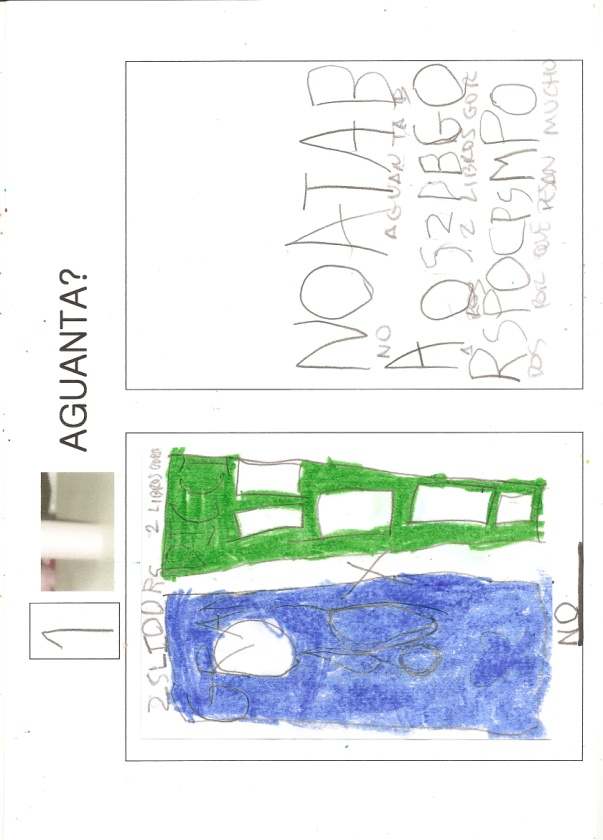 1 AGUANTA?
2 LIBROS
NO
NOATAB
NO AGUANTA B
A OS2PBGO
2 LIBROS GOR
RSPOCPSMPO
DOS POR QUE PESAN MUCHO